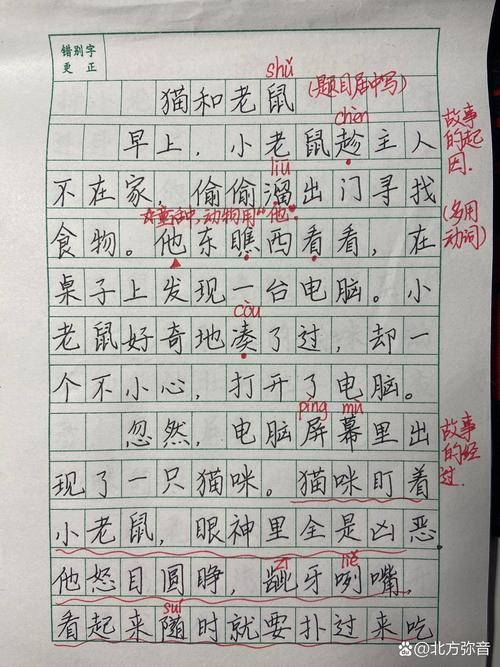 错别字
更正
shǔ
猫和老鼠 (题目居中写)
chèn
早上，小老鼠趁主人
故事的起因.
liū
不在家，偷偷溜出门寻找
(多用动词)
童话中,动物用"他"
食物。他东瞧西看看，在
桌子上发现一台电脑。小
còu
老鼠好奇地凑了过，却一
个不小心，打开了电脑。
píng mù
忽然，电脑屏幕里出
故事的经过.
现了一只猫咪。猫咪盯着
小老鼠，眼神里全是凶恶
zī liě
他怒目圆睁，龇牙咧嘴，
suí
看起来随时就要扑过来吃
百家号/北方弥音